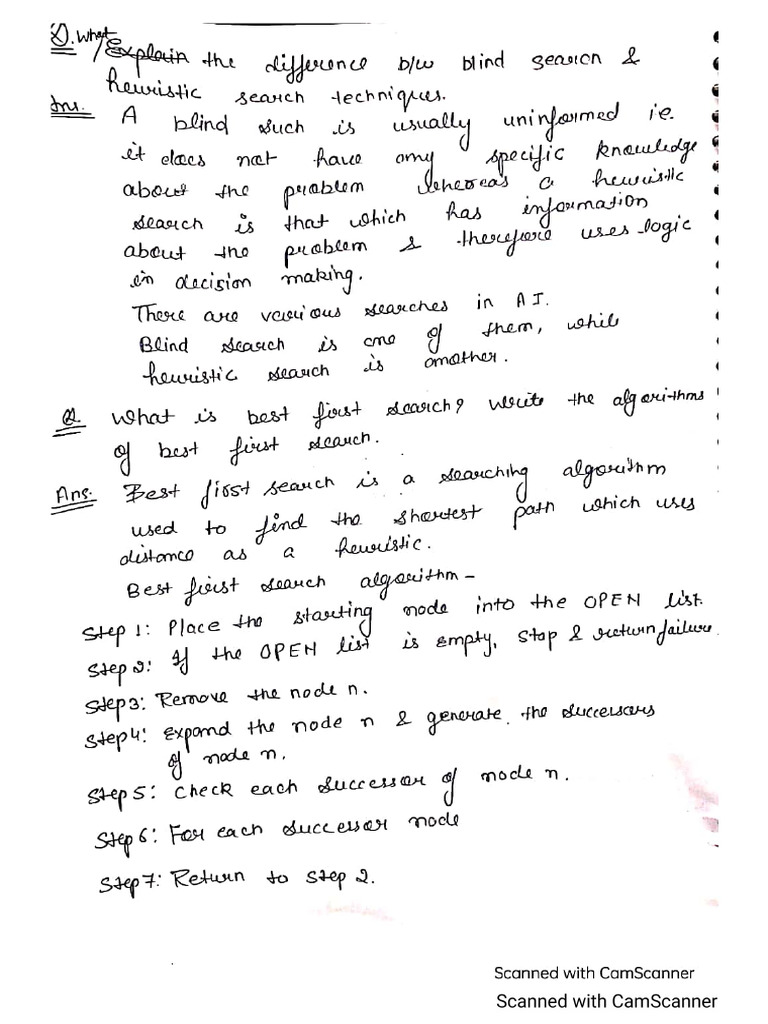 Q. What Explain the difference b/w blind search &
heuristic search techniques.
Ans. A blind such is usually uninformed i.e.
it does not have any specific knowledge
about the problem whereas a heuristic
search is that which has information
about the problem & therefore uses logic
in decision making.
There are various searches in AI.
Blind search is one of them, while
heuristic search is another.
Q. What is best first search? Write the algorithms
of best first search.
Ans. Best first search is a searching algorithm
used to find the shortest path which uses
distance as a heuristic.
Best first search algorithm -
Step 1: Place the starting node into the OPEN list.
Step 2: If the OPEN list is empty, stop & return failure.
Step 3: Remove the node n.
Step 4: Expand the node n & generate the successors
of node n.
Step 5: Check each successor of node n.
Step 6: For each successor node
Step 7: Return to step 2.
Scanned with CamScanner
Scanned with CamScanner